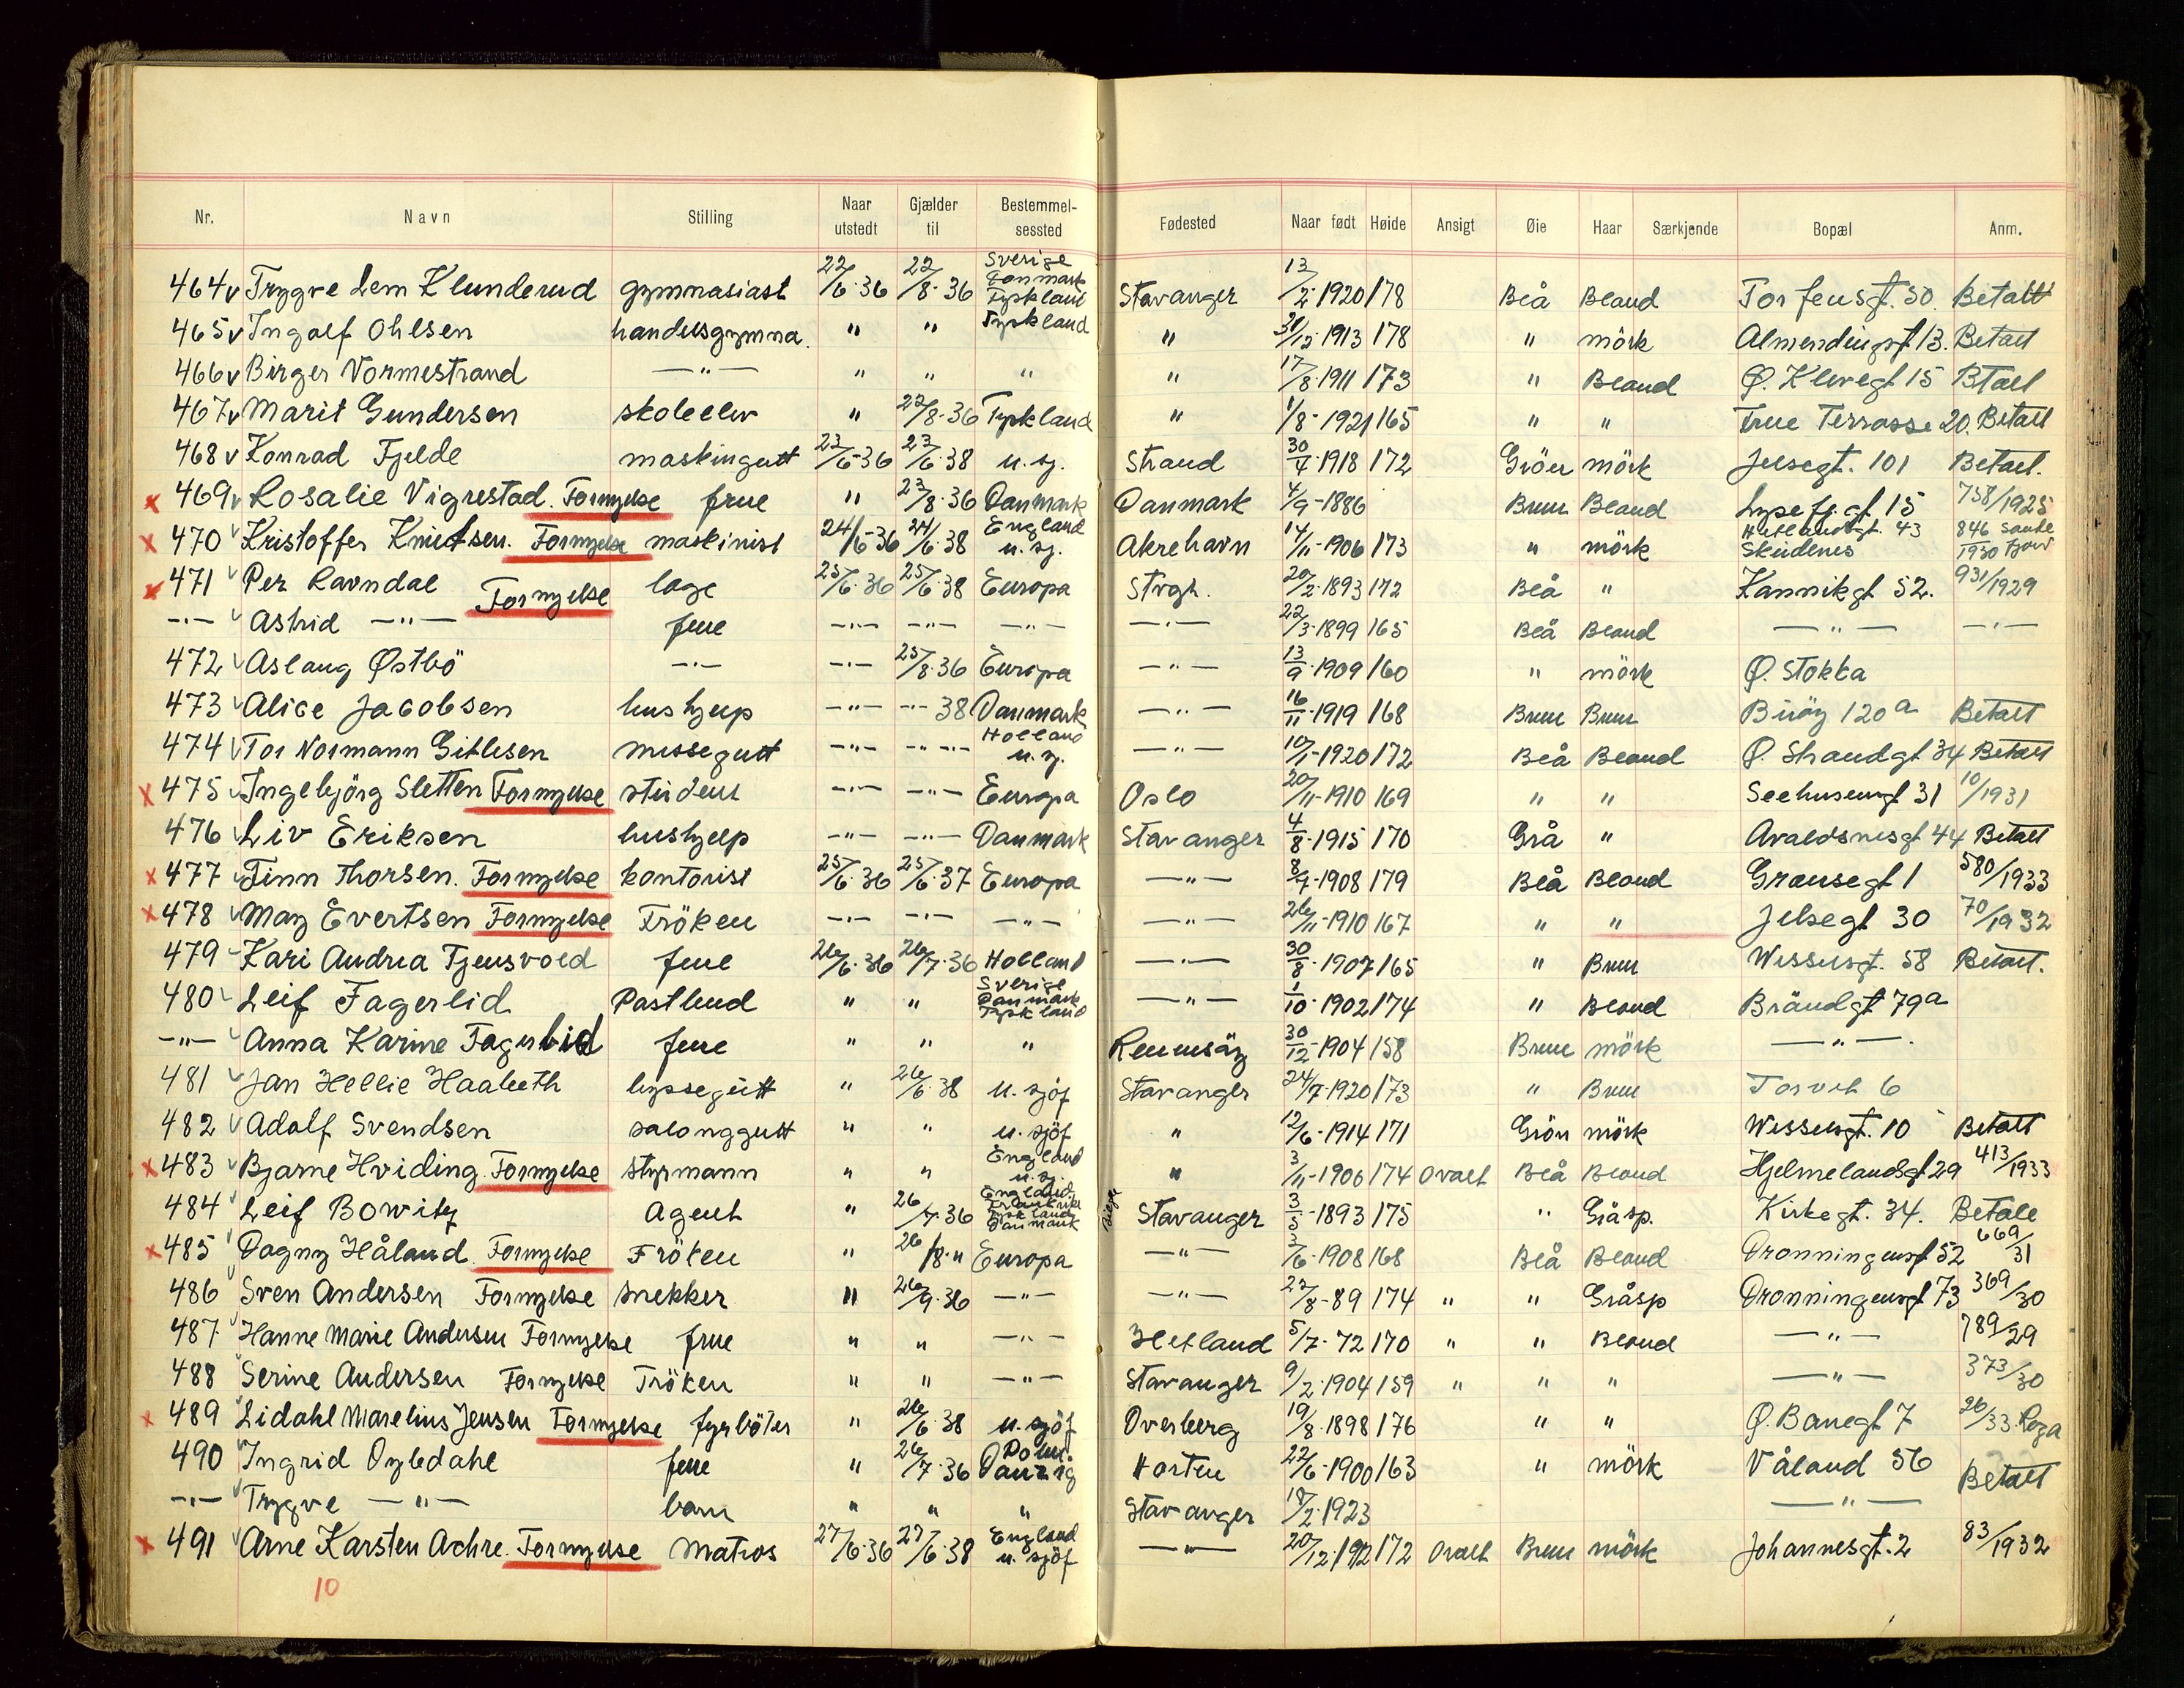 Nr. Navn Stilling Naar utstedt Gjælder til Bestemmel-sessted Fødested Naar født Høide Ansigt Øie Haar Særkjende Bopæl Anm.
464 v Trygve Lem Klunderud gymnasiast 22/6-36 22/8-36 Sverige Danmark Tyskland Stavanger 13/2-1920 178 Blå Blond Torfeusgt. 50. Betalt
465 v Ingolf Ohlsen handelsgymna. " " Tyskland " 31/12-1913 178 " mörk Almendingsgt 13. Betalt
466 v Birger Vormestrand —"— " " " " 17/8-1911 173 " Blond Ø. Klevegt 15 Btalt
467 v Marit Gundersen skoleelev " 22/8-36 Tyskland " 1/8-1921 165 " " True Terrasse 20. Betalt
468 v Konrad Fjelde maskingutt 23/6-36 23/6-38 u. sj. Strand 30/4-1918 172 Grön mörk Jelsegt. 101 Betalt.
x 469 v Rosalie Vigrestad. Fornyelse frue " 23/8-36 Danmark Danmark 4/9-1886 Brun Blond Lysefj.gt 15 758/1925
x 470 v Kristoffer Knutsen. Fornyelse maskinist 24/6-36 24/6-38 England u. sj. Åkrehavn 14/11-1906 173 " mörk Hetlandsgt. 43 Skudenes 846 1930
x 471 v Per Ravndal Fornyelse læge 25/6-36 25/6-38 Europa Stvgr. 20/2-1893 172 Blå " Kannikgt 52. 931/1929
—"— v Astrid —"— frue —"— —"— —"— —"— 22/3-1899 165 Blå Blond —"— —"—
472 v Aslaug Østbö —"— —"— 25/8-36 Europa —"— 13/9-1909 160 " mörk Ø. Stokka
473 v Alice Jacobsen hushjelp —"— —"— 38 Danmark —"— 16/11-1919 168 Brun Brun Buöy 120 a Betalt
474 v Tor Normann Gitlesen messegutt —"— —"— Holland u. sj. —"— 10/1-1920 172 Blå Blond Ø. Strandgt 34 Betalt
x 475 v Ingebjörg Sletten Fornyelse student —"— —"— Europa Oslo 20/11-1910 169 " " Seehusensgt 31 10/1931
476 v Liv Eriksen hushjelp —"— —"— Danmark Stavanger 4/8-1915 170 Grå " Avaldsnesgt 44 Betalt
x 477 v Finn Thorsen. Fornyelse kontorist 25/6-36 25/6-37 Europa —"— 8/7-1908 179 Blå Blond Gransegt 1 580/1933
x 478 v May Evertsen Fornyelse Fröken —"— —"— —"— —"— 26/11-1910 167 " " Jelsegt 30 70/1932
479 v Kari Andrea Tjensvold frue 26/6-36 26/7-36 Holland —"— 30/8-1907 165 " Brun Wesselsgt. 58 Betalt.
480 v Leif Fagerlid Postbud " " Sverige Danmark Tyskland —"— 1/10-1902 174 " Blond Bråndgt 79a
—"— v Anna Karine Fagerlid frue " " " Rennesöy 30/12-1904 158 Brun mörk —"—
481 v Jan Hellie Haabeth byssegutt " 26/6-38 u. sjöf Stavanger 24/7-1920 173 " Brun Torvet 6
482 v Adolf Svendsen salonggutt " " u. sjöf " 12/6-1914 171 Grön mörk Wesselsgt. 10 Betalt
x 483 v Bjarne Hviding. Fornyelse styrmann " " England u. sj. " 3/11-1906 174 Ovalt Blå Blond Hjelmelandsgt 29 413/1933
484 v Leif Bowitz Agent " 26/7-36 England Frankrike Tyskland Danmark Stavanger 3/5-1893 175 " Gråsp. Kirkegt. 34. Betalt
x 485 v Dagny Håland Fornyelse Fröken " 26/8-" Europa —"— 3/6-1908 168 Blå Blond Dronningensgt 52 669/31
486 v Sven Andersen Fornyelse snekker " 26/9-36 —"— —"— 27/8-89 174 " " Gråsp Dronningensgt 73 369/30
487 v Hanne Marie Andersen Fornyelse frue " " —"— Hetland 5/7-72 170 " " Blond —"— 789/29
488 v Serine Andersen Fornyelse Fröken " " —"— Stavanger 9/2-1904 159 " " " —"— 373/30
x 489 v Lidahl Marelius Jensen Fornyelse fyrböter " 26/6-38 u. sjöf Overberg 19/8-1898 176 " " Ø. Banegt 7 26/33. Roga
490 v Ingrid Oybdahl frue " 26/7-36 Polen. Danzig Horten 22/6-1900 163 " mörk Våland 56 Betalt
—"— v Trygve —"— barn " " " Stavanger 18/2-1923 —"—
x 491 v Arne Karsten Achre. Fornyelse Matros 27/6-36 27/6-38 England u. sjöf —"— 20/12-1912 172 Ovalt Brun mörk Johannesgt. 2 83/1932
10